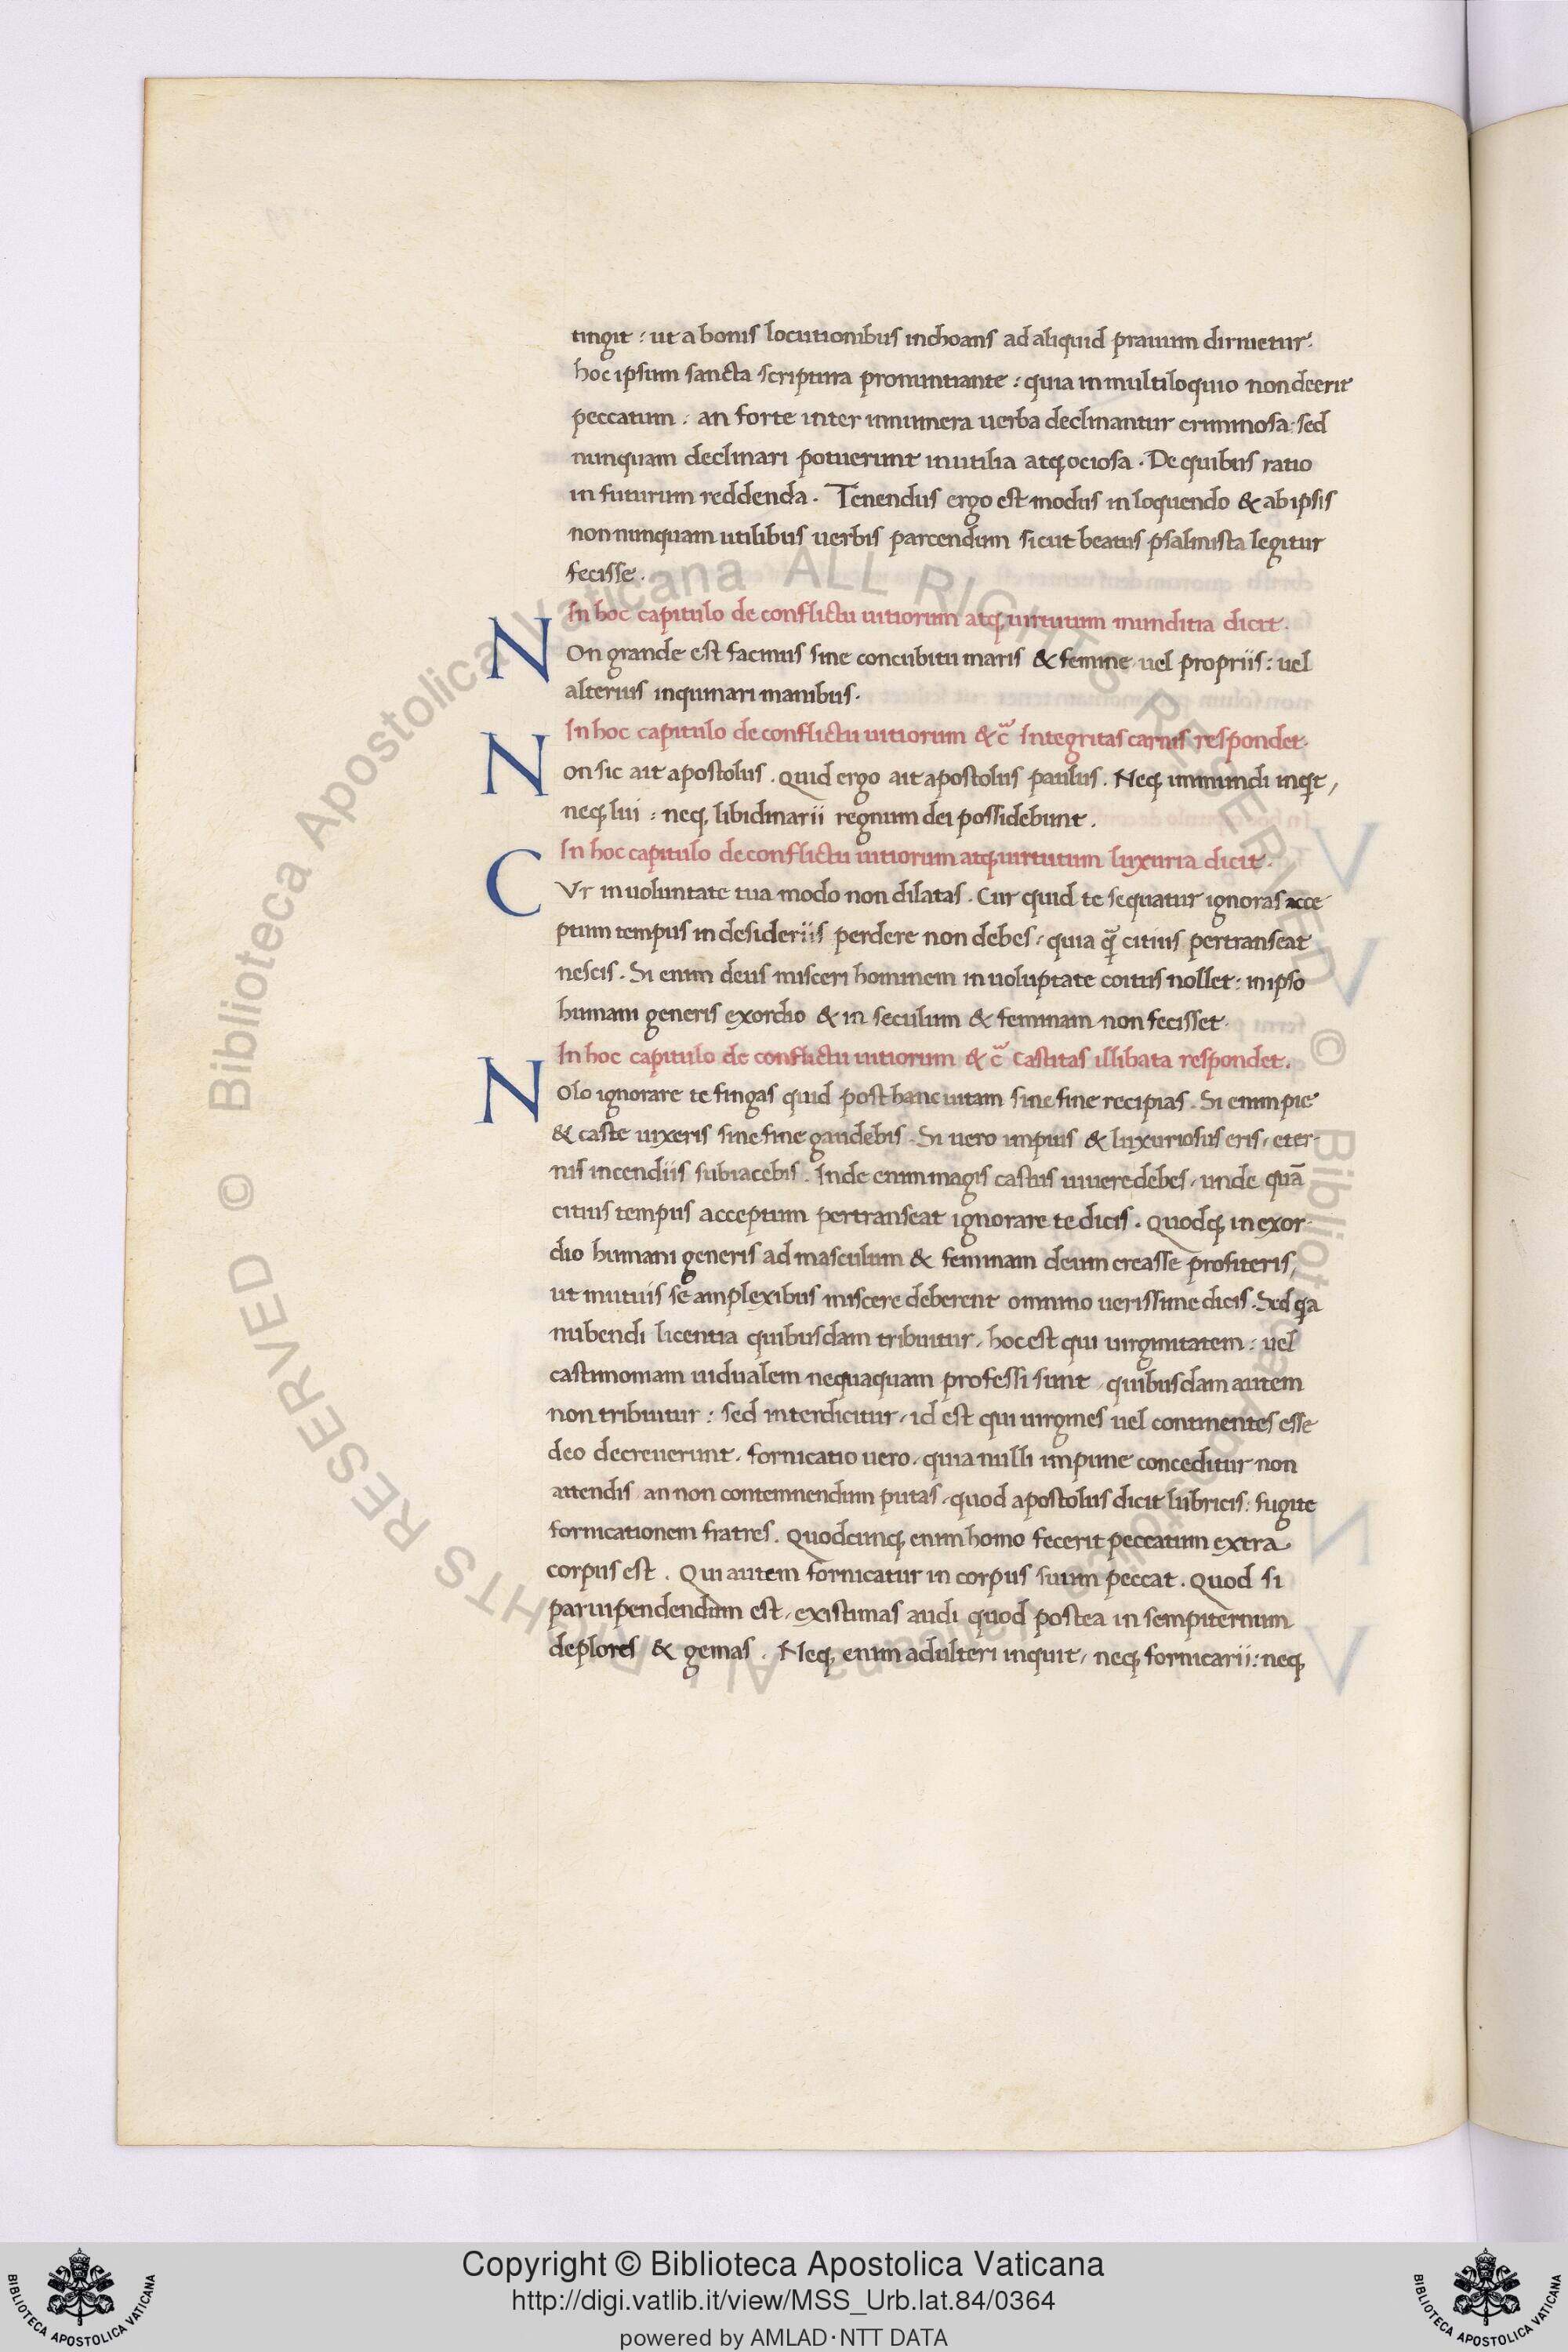 tingit : ut a bonis locutionibus inchoans ad aliquid prauum diriuetur.
hoc ipsum sancta scriptura pronuntiante : quia in multiloquio non deerit
peccatum : an forte inter innumera uerba declinantur criminosa : sed
nunquam declinari potuerunt inutilia atq; ociosa . De quibus ratio
in futurum reddenda . Tenendus ergo est modus in loquendo & ab ipsis
non nunquam utilibus uerbis parcendum sicut beatus psalmista legitur
fecisse .
In hoc capitulo de conflictu uitiorum atq; uirtutum inmunditia dicit .
NOn grande est facinus sine concubitu maris & femine uel propriis : uel
alterius inquinari manibus .
In hoc capitulo de conflictu uitiorum & c̃ Integritas carnis respondet .
Non sic ait apostolus . Quid ergo ait apostolus paulus . Neq; inmundi inq̇t /
neq; lui : neq; libidinarii regnum dei possidebunt .
In hoc capitulo de conflictu uitiorum atq; uirtutum luxuria dicit .
CVr in uoluntate tua modo non dilatas . Cur quid te sequatur ignoras acce
ptum tempus in desideriis perdere non debes / quia q̃ citius pertranseat
nescis . Si enim deus misceri hominem in uoluptate coitus nollet : in ipso
humani generis exordio & in seculum & feminam non fecisset .
In hoc capitulo de conflictu uitiorum & c̃ Castitas illibata respondet .
NOlo ignorare te fingas quid post hanc uitam sine fine recipias . Si enim pie
& caste uixeris sine fine gaudebis . Si uero impius & luxuriosus eris / eter-
nis incendiis subiacebis . Inde enim magis castus uiuere debes / unde quã
citius tempus acceptum pertranseat ignorare te dicis . Quodq; in exor-
dio humani generis ad masculum & feminam deum creasse profiteris /
ut mutuis se amplexibus miscere deberent omnino uerissime dicis . Sed qa
nubendi licentia quibusdam tribuitur / hoc est qui uirginitatem : uel
castimoniam uidualem nequaquam professi sunt / quibusdam autem
non tribuitur : sed interdicitur / id est qui uirgines uel continentes esse
deo decreuerunt / fornicatio uero / quia nulli impune conceditur non
attendis an non contemnendum putas / quod apostolus dicit lubricis : fugite
fornicationem fratres . Quodcunq; enim homo fecerit peccatum extra
corpus est . Qui autem fornicatur in corpus suum peccat . Quod si
paruipendendum est / existimas audi quod postea in sempiternum
deplores & gemas . Neq; enim adulteri inquit / neq; fornicarii : neq;
© Biblioteca Apostolica Vaticana ALL RIGHTS RESERVED © Biblioteca Apostolica Vaticana ALL RIGHTS RESERVED
Copyright © Biblioteca Apostolica Vaticana
http://digi.vatlib.it/view/MSS_Urb.lat.84/0364
powered by AMLAD·NTT DATA
BIBLIOTECA APOSTOLICA VATICANA
BIBLIOTECA APOSTOLICA VATICANA